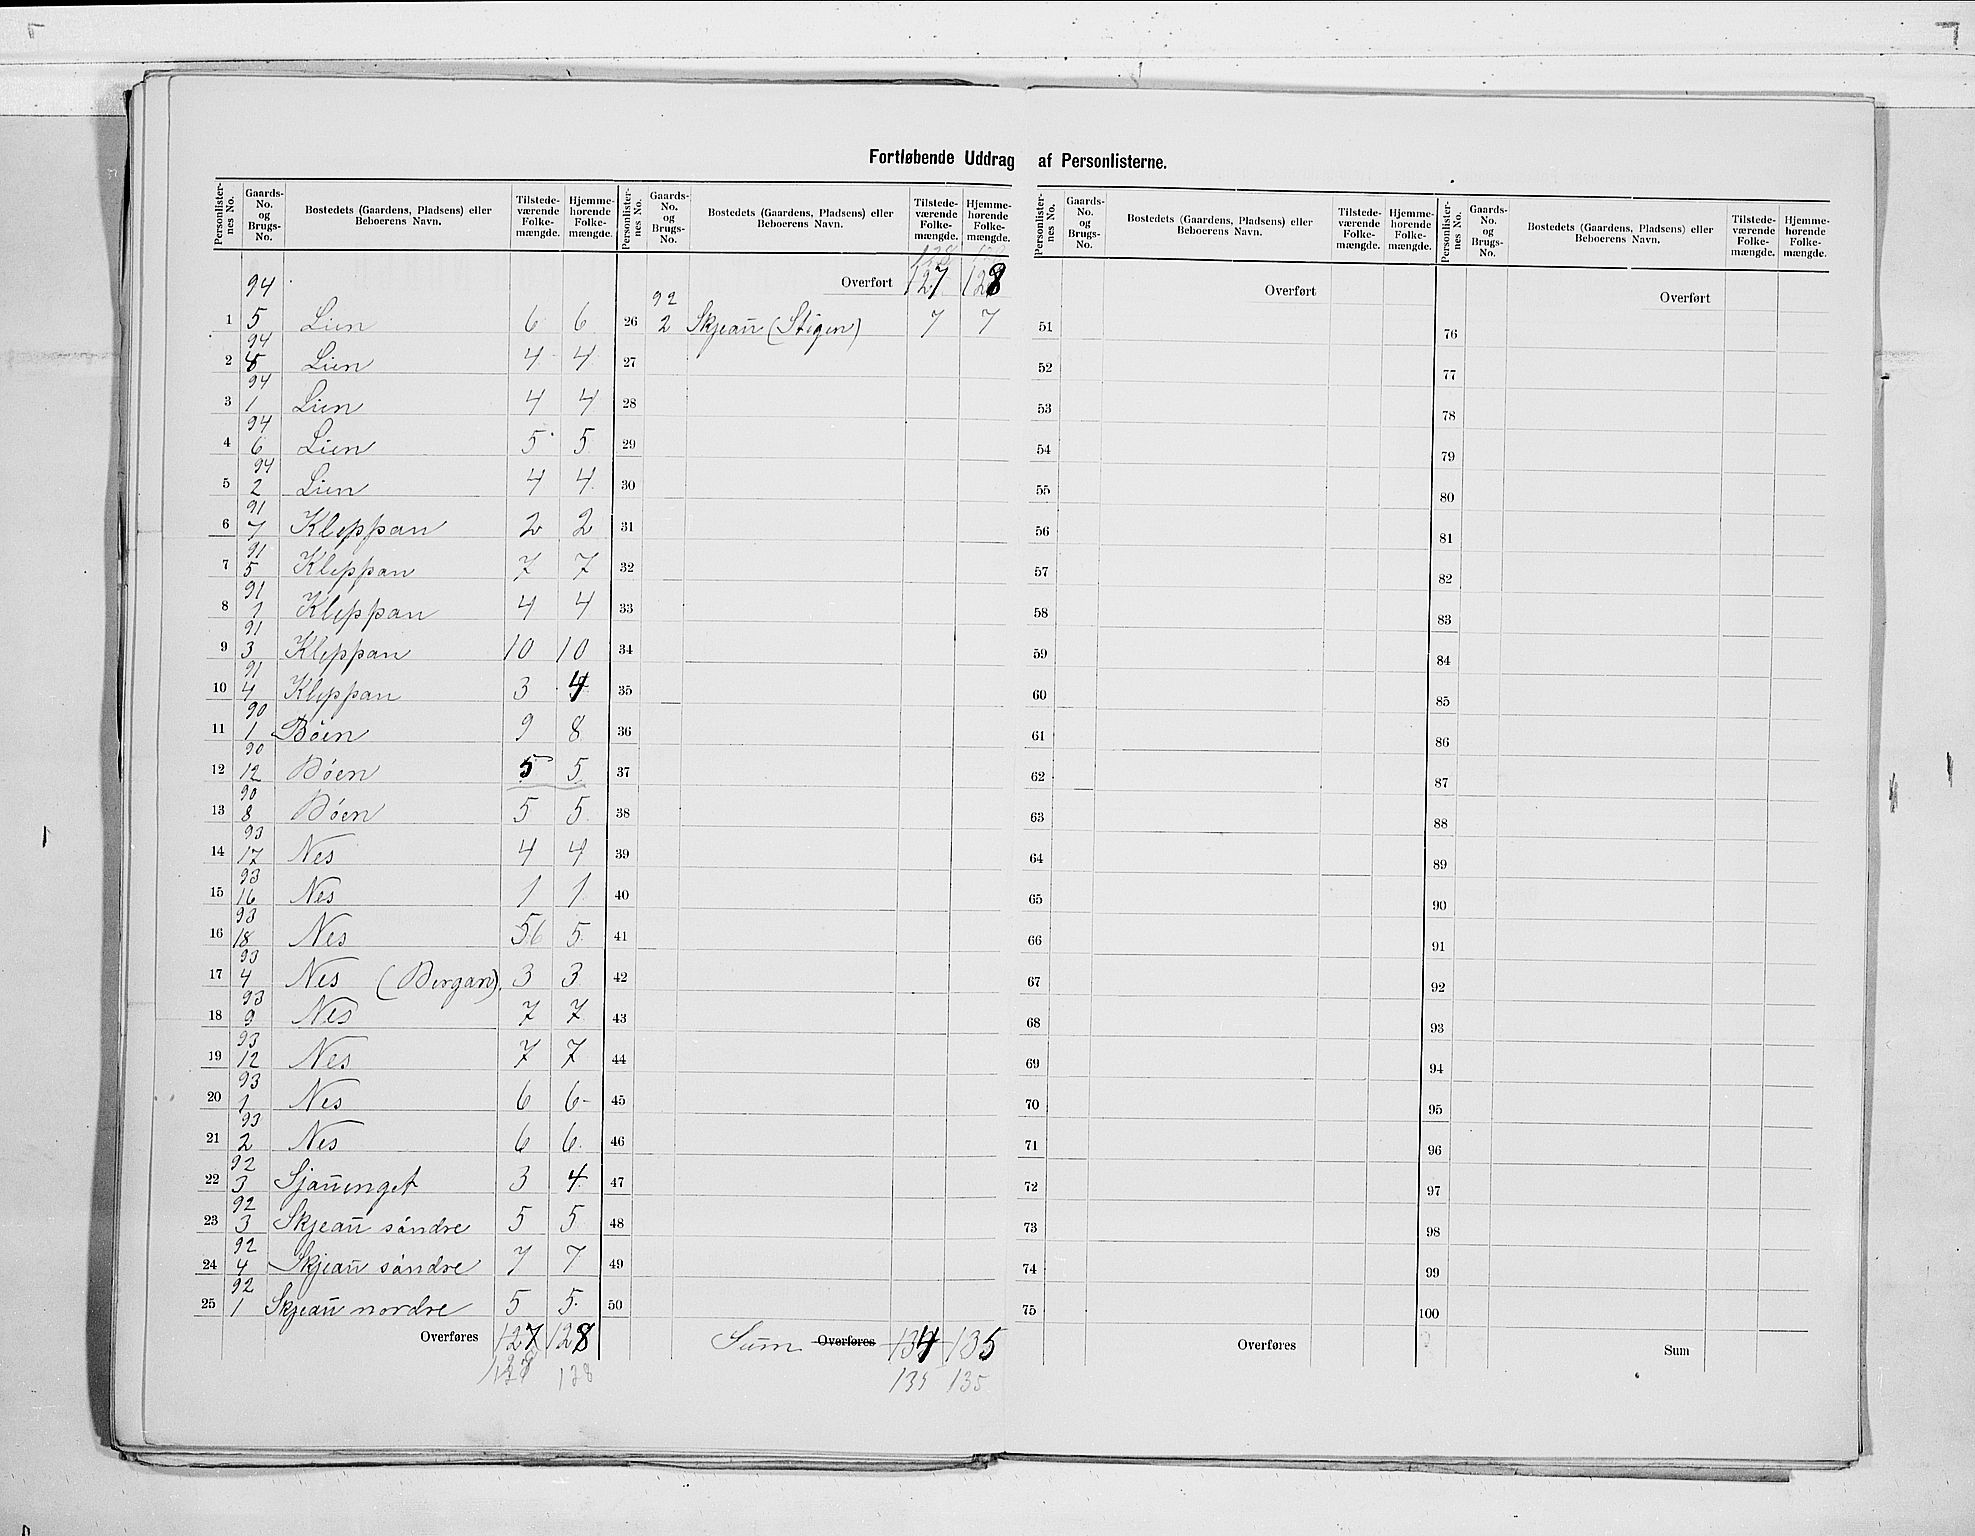 Fortløbende Uddrag af Personlisterne.
Personlister-nes No. | Gaards-No. og Brugs-No. | Bostedets (Gaardens, Pladsens) eller Beboerens Navn. | Tilstede-værende Folke-mængde. | Hjemme-hørende Folke-mængde.
1 | 94 5 | Lien | 6 | 6
2 | 94 | Lien | 4 | 4
3 | 94 1 | Lien | 4 | 4
4 | 94 6 | Lien | 5 | 5
5 | 94 2 | Lien | 4 | 4
6 | 91 7 | Kleppan | 2 | 2
7 | 91 5 | Kleppan | 7 | 7
8 | 91 1 | Kleppan | 4 | 4
9 | 91 3 | Kleppan | 10 | 10
10 | 91 4 | Kleppan | 3 | 4
11 | 90 1 | Böen | 9 | 8
12 | 90 12 | Böen | 5 | 5
13 | 90 8 | Böen | 5 | 5
14 | 93 17 | Nes | 4 | 4
15 | 93 16 | Nes | 1 | 1
16 | 93 18 | Nes | 5 6 | 5
17 | 93 4 | Nes (Bergan) | 3 | 3
18 | 93 9 | Nes | 7 | 7
19 | 93 12 | Nes | 7 | 7
20 | 93 1 | Nes | 6 | 6
21 | 93 2 | Nes | 6 | 6
22 | 92 3 | Sjauenget | 3 | 4
23 | 92 3 | Skjeau söndre | 5 | 5
24 | 92 4 | Skjeau söndre | 7 | 7
25 | 92 1 | Skjeau nordre | 5 | 5
Overføres | 127 | 128
128
Personlister-nes No. | Gaards-No. og Brugs-No. | Bostedets (Gaardens, Pladsens) eller Beboerens Navn. | Tilstede-værende Folke-mængde. | Hjemme-hørende Folke-mængde.
128 | 128
Overført | 127 | 128
26 | 92 2 | Skjeau (Stigen) | 7 | 7
27
28
29
30
31
32
33
34
35
36
37
38
39
40
41
42
43
44
45
46
47
48
49
50
Sum Overføres | 134 | 135
135 | 135
Personlister-nes No. | Gaards-No. og Brugs-No. | Bostedets (Gaardens, Pladsens) eller Beboerens Navn. | Tilstede-værende Folke-mængde. | Hjemme-hørende Folke-mængde.
Overført
51
52
53
54
55
56
57
58
59
60
61
62
63
64
65
66
67
68
69
70
71
72
73
74
75
Overføres
Personlister-nes No. | Gaards-No. og Brugs-No. | Bostedets (Gaardens, Pladsens) eller Beboerens Navn. | Tilstede-værende Folke-mængde. | Hjemme-hørende Folke-mængde.
Overført
76
77
78
79
80
81
82
83
84
85
86
87
88
89
90
91
92
93
94
95
96
97
98
99
100
Sum